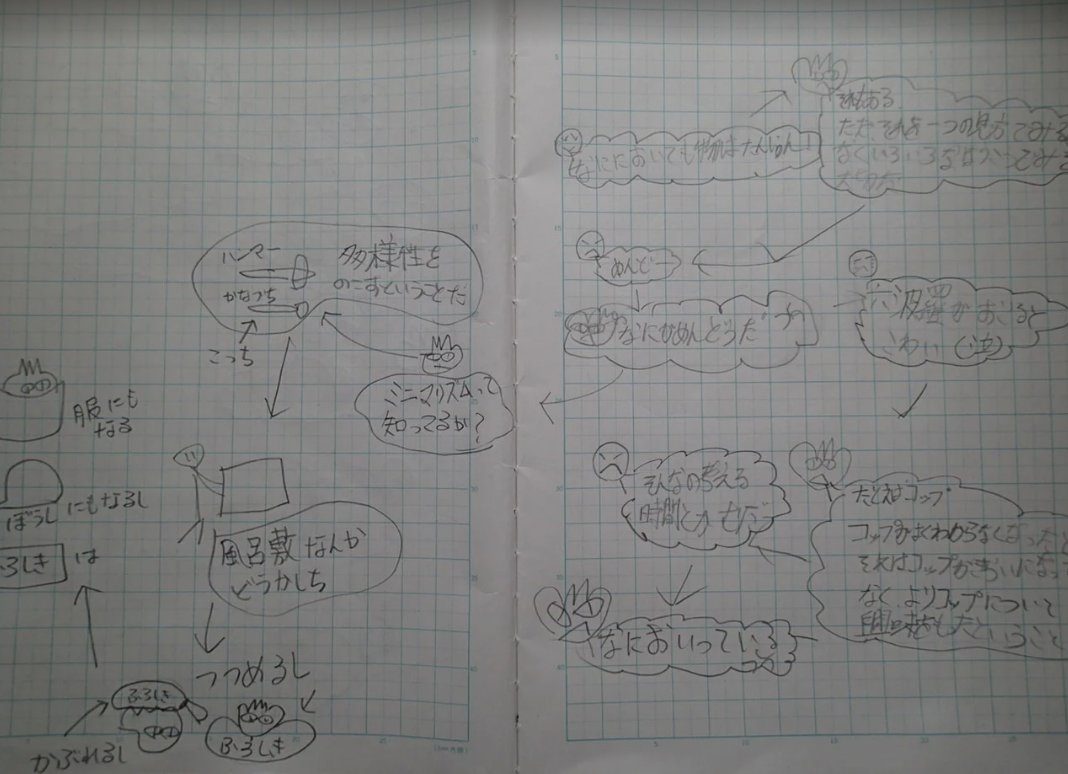 それもある。
ただそれを一つの見方でみる
なくいろいろな
なにに おいても
めんどー
なにがめんどうだ
波羅がおこると
こわい(泣)
たとえばコップ
コップがよくわからなくなった
それはコップがきらいになって
なく、よりコップについて
興味をもったということ
そんなの考える
時間とか
なにおいっている
ミニマリズムって
知ってるか?
多様性を
のこすということだ
ハンマー
かなづち
こっち
風呂敷なんか
どうかしち
つつめるし
ふろしき
ふろしき
かぶれるし
ろしき は
ぼうし にもなるし
服にも
なる